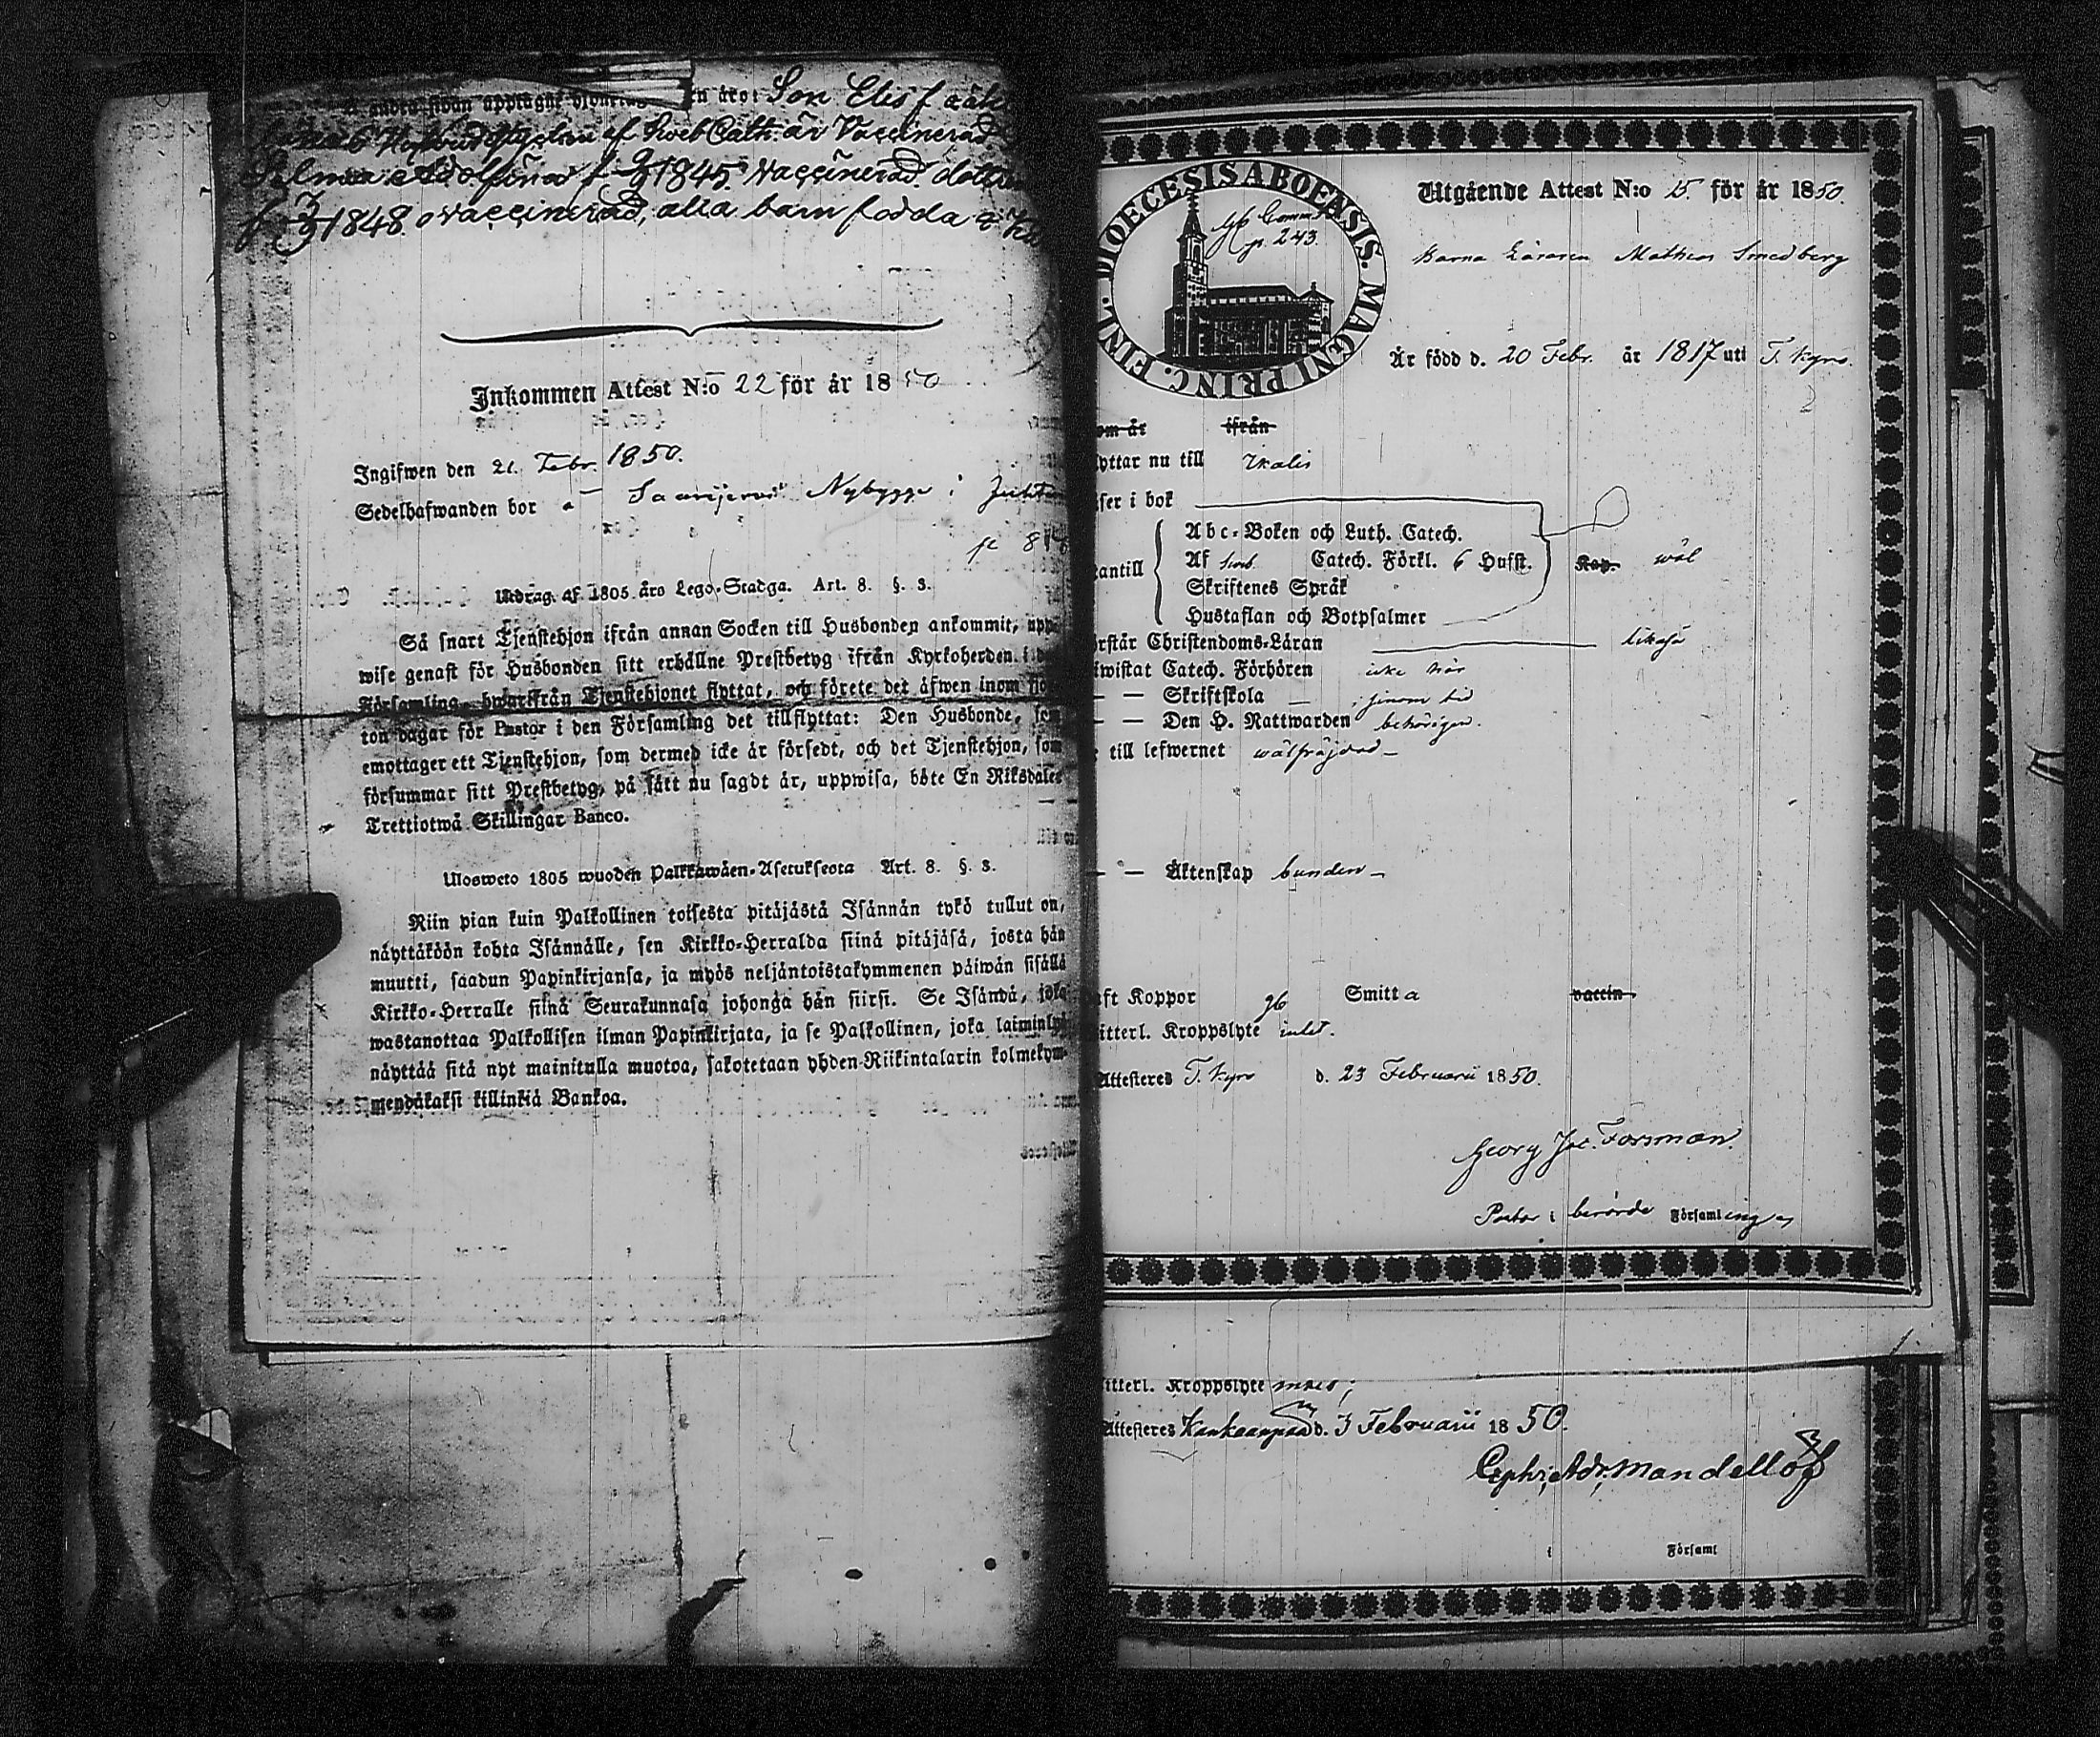 å andra sidan upptagne n äro: Son Elis f
6 Hufvudstycken af Sveb Cath. är Vaccinerad
Selma Adolfina f 1845. Vaccinerad. dottren
f 1848. ovaccinerad, alla barn födda i
Inkommen Attest N:o 22 för år 1850
Ingifwen den 21. Febr. 1850.
Sedelhafwanden bor å Saarijervi Nybygge i
Utdrag af 1805 års Lego-Stadga. Art. 8. §. 3.
Så snart Tjenstehjon ifrån annan Socken till Husbonden ankommit, upp
wise genast för Husbonden sitt erhållne Prestbetyg ifrån Kyrkoherden i
Församling, hwarifrån Tjenstehjonet flyttat, och förete det äfwen inom fjor
ton dagar för Pastor i den Församling det tillflyttat: Den Husbonde, som
emottager ett Tjenstehjon, som dermed icke är försedt, och det Tjenstehjon, som
försummar sitt Prestbetyg, på sätt nu sagdt är, uppwisa, böte En Riksdaler
Trettiotwå Skillingar Banco.
Ulosweto 1805 wuoden Palkkawäen-Asetuksesta Art. 8. §. 3.
Niin pian kuin Palkollinen toisesta pitäjästä Isännän tykö tullut on,
näyttäköön kohta Isännälle, sen Kirkko-Herralda siinä pitäjäsä, josta hän
muutti, saadun Papinkirjansa, ja myös neljäntoistakymmenen päiwän sisällä
Kirkko-Herralle siinä Seurakunnasa johonga hän siirsi. Se Isändä, joka
wastanottaa Palkollisen ilman Papinkirjata, ja se Palkollinen, joka laiminlyö
näyttää sitä nyt mainitulla muotoa, sakotetaan yhden Riikintalarin kolmekym-
mendäkaksi killinkiä Bankoa.
DIOECESIS ABOENSIS. MAGNI PRINC. FINL.
p. 243.
Utgående Attest N:o 15. för år 1850.
Barna Läraren Mathias Smedberg
Är född d. 20 Febr. år 1817 uti T. Kyro.
om år ifrån
yttar nu till Ikalis
ser i bok
antill
Abc-Boken och Luth. Catech.
Af Sveb. Catech. Förkl. 6 Hufst. Kap. wäl
Skriftenes Språk
Hustaflan och Botpsalmer
rstår Christendoms-Läran likaså
iwistat Catech. Förhören icke här
— — Skriftskola i sinom tid
— — Den H. Nattwarden behörigen.
till lefwernet wälfräjdad —
— — Äktenskap bunden —
aft Koppor Smitta vaccin
itterl. Kroppslyte intet.
Attesteres T. Kyro d. 23 Februarii 1850.
Georg Jac. Forsman
Pastor i berörde Församlingen
itterl. Kroppslyte
Attesteres Kankaanpää d. 3 Februarii 1850.
Mandellöf
i Församl